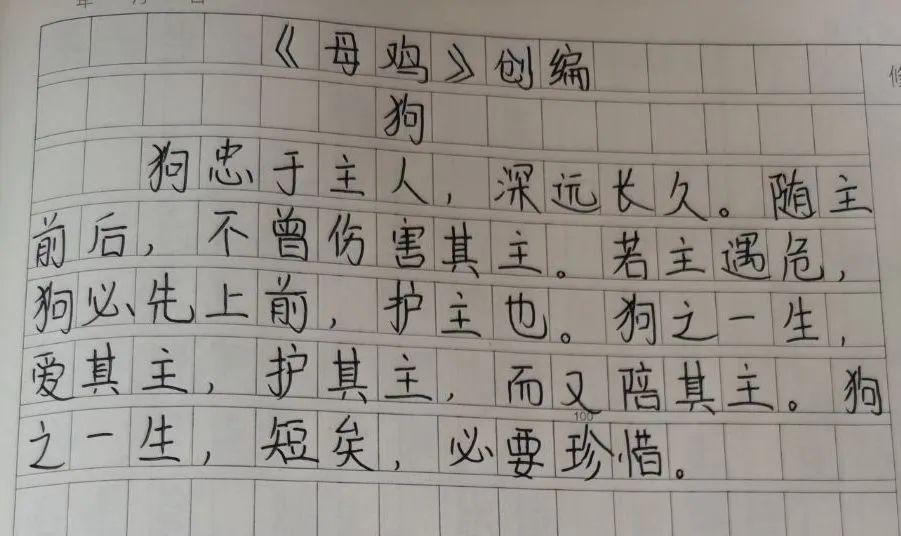 《母鸡》创编
狗
狗忠于主人，深远长久。随主
前后，不曾伤害其主。若主遇危，
狗必先上前，护主也。狗之一生，
爱其主，护其主，而又陪其主。狗
之一生，短矣，必要珍惜。
100